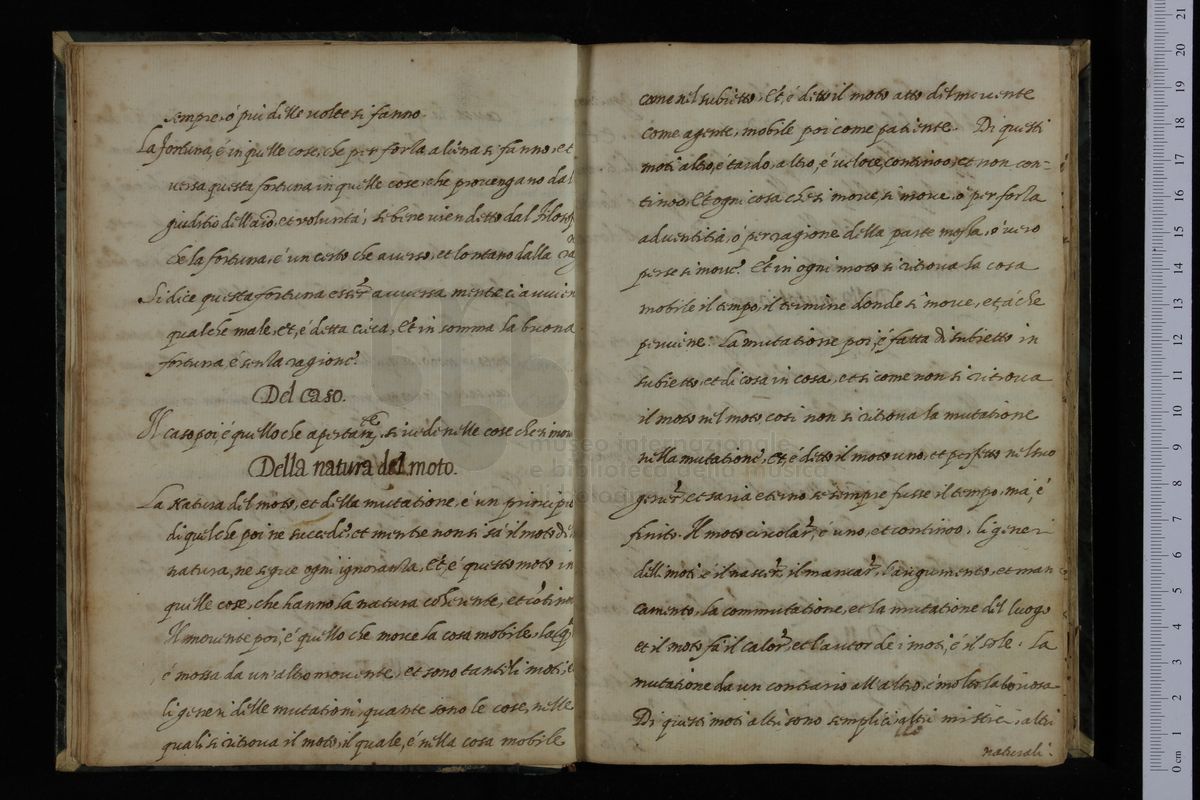 sempre, ó piú delle volte si fanno.
La fortuna, é in quelle cose, che per forza aliena si fanno, et
versa questa fortuna in quelle cose, che provengano dal
giuditio dell', et voluntá; se bene vien detto dal
che la fortuna, é un certo che averso, et lontano dalla
Si dice questa fortuna esser avversa mentre ci avvien
qualche male, et, é detta cieca, Et in somma la buona
fortuna é senza ragione.
Del caso.
Il caso poi, é quello che, si vede nelle cose che si
Della natura del moto.
La Natura del moto, et della mutatione, é un principio
di quel che poi ne succede, et mentre non si sá il moto
natura, ne segue ogni ignoranza, Et, é questo moto in
quelle cose, che hanno la natura coherente, et
Il movente poi, é quello che move la cosa mobile,
é mossa da un'altro movente, et sono tanti li moti, é
li generi delle mutationi, quante sono le cose, nelle
quali si ritrova il moto, il quale, é nella cosa mobile
come nel subietto, Et, é detto il moto atto del movente
come agente, mobile poi come patiente. Di questi
moti altro, é tardo, altro, é veloce, continoo, et non con=
tinoo, Et ogni cosa che si move, si move, ó per forza
adventitia, ó per ragione della parte mossa, ó vero
per se si move. Et in ogni moto si ritrova la cosa
mobile il tempo, il termine donde si move, et, á che
perviene. La mutatione poi, é fatta di subietto in
subietto, et di cosa in cosa, et si come non si ritrova
il moto nel moto, cosi non si ritrova la mutatione
nella mutatione, Et, é detto il moto uno, et perfetto nel suo
genere, et saria eterno se sempre fusse il tempo, má, é
finito. Il moto circolare, é uno, et continoo, li generi
delli moti é il nascer, il mancar, l'augumento, et man
camento, la commutatione, et la mutatione del luogo
et il moto fá il calore, et l'autor de i moti, é il sole. La
mutatione da un contrario all'altro, é molto laboriosa
Di questi moti altri sono semplici, altri misti, altri
naturali.
museo internazionale
e biblioteca della musica
di bologna
0 cm 1 2 3 4 5 6 7 8 9 10 11 12 13 14 15 16 17 18 19 20 21